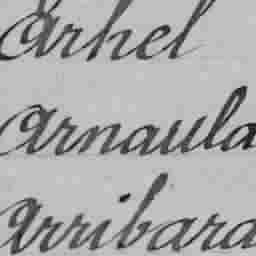 Arhel
Arnaula
Arribara